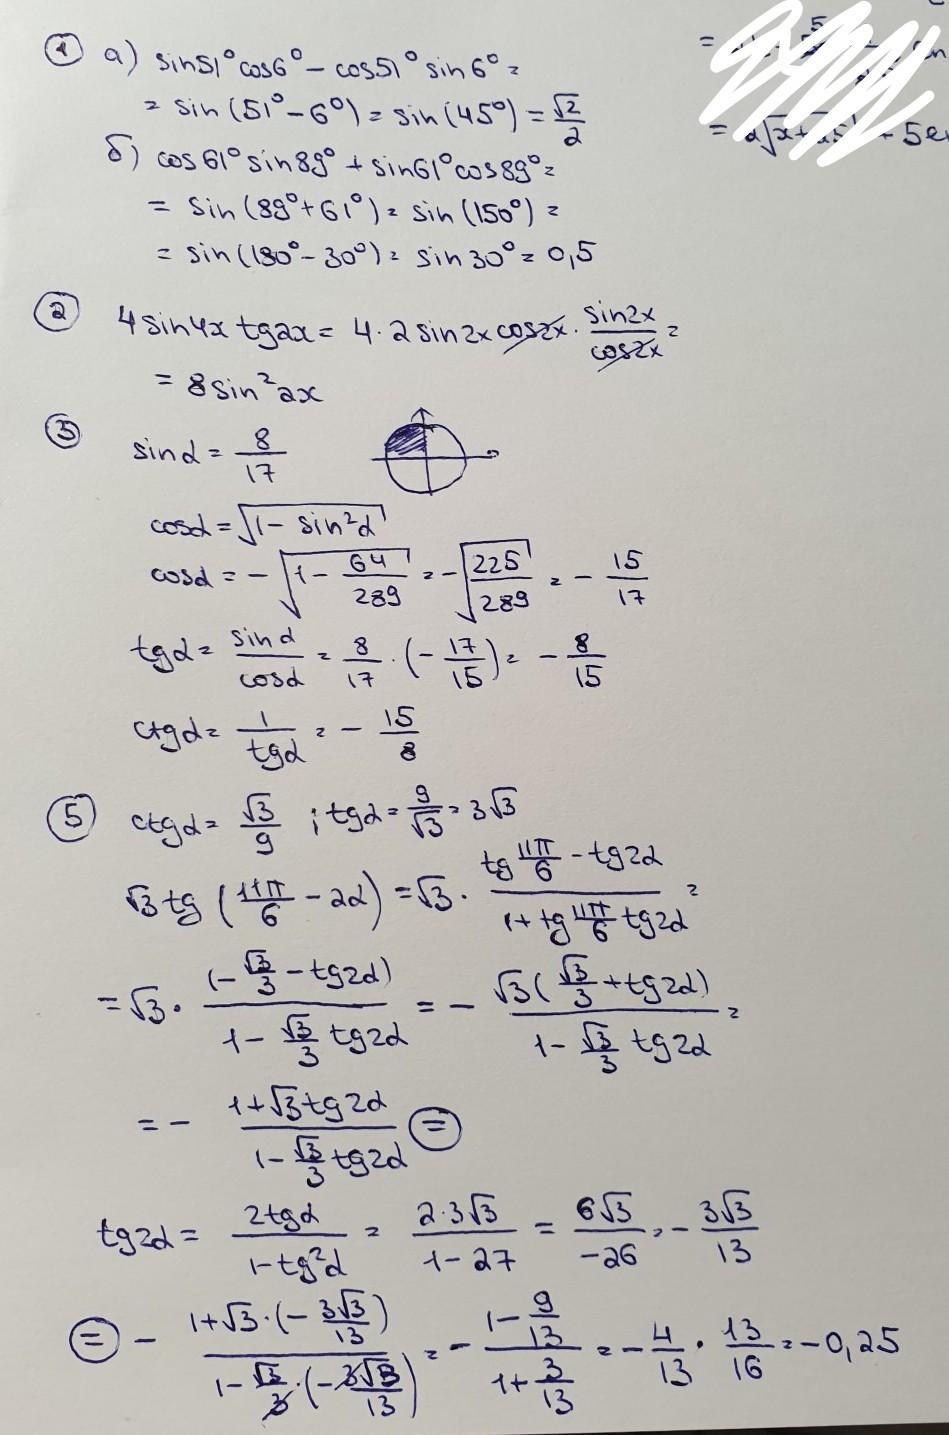 ① а) sin51°cos6° - cos51°sin6° =
= sin(51°-6°) = sin(45°) = √2/2
б) cos61°sin89° + sin61°cos89° =
= sin(89°+61°) = sin(150°) =
= sin(180°-30°) = sin30° = 0,5
② 4sin4x tg2x = 4·2sin2x cos2x · sin2x/cos2x =
= 8sin²2x
③ sinα = 8/17
cosα = √(1 - sin²α)
cosα = -√(1 - 64/289) = -√(225/289) = -15/17
tgα = sinα/cosα = 8/17 · (-17/15) = -8/15
ctgα = 1/tgα = -15/8
⑤ ctgα = √3/9 ; tgα = 9/√3 = 3√3
√3 tg(11π/6 - 2α) = √3 · (tg 11π/6 - tg2α)/(1 + tg 11π/6 tg2α) =
= √3 · (-√3/3 - tg2α)/(1 - √3/3 tg2α) = - √3(√3/3 + tg2α)/(1 - √3/3 tg2α) =
= - (1+√3tg2α)/(1 - √3/3 tg2α) ⊜
tg2α = 2tgα/(1-tg²α) = 2·3√3/(1-27) = 6√3/-26 = -3√3/13
⊜ - (1+√3·(-3√3/13))/(1 - √3/3·(-3√3/13)) = - (1 - 9/13)/(1 + 3/13) = -4/13 · 13/16 = -0,25